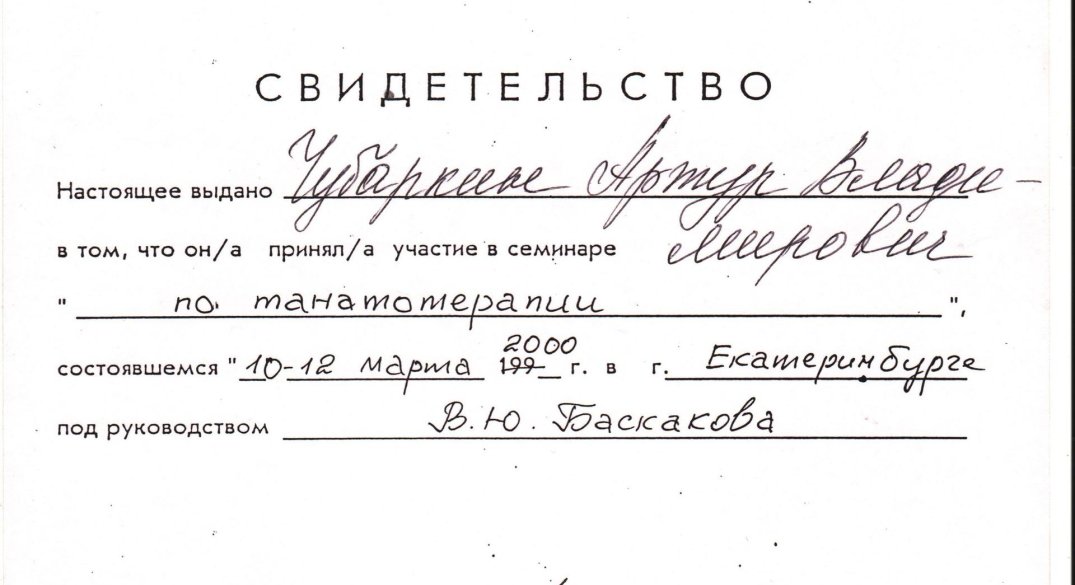 СВИДЕТЕЛЬСТВО
Настоящее выдано Чубаркин Артур Влади-
в том, что он/а принял/а участие в семинаре мирович
" по танатотерапии ",
состоявшемся " 10-12 марта 2000 199 г. в г. Екатеринбурге
под руководством В.Ю. Баскакова